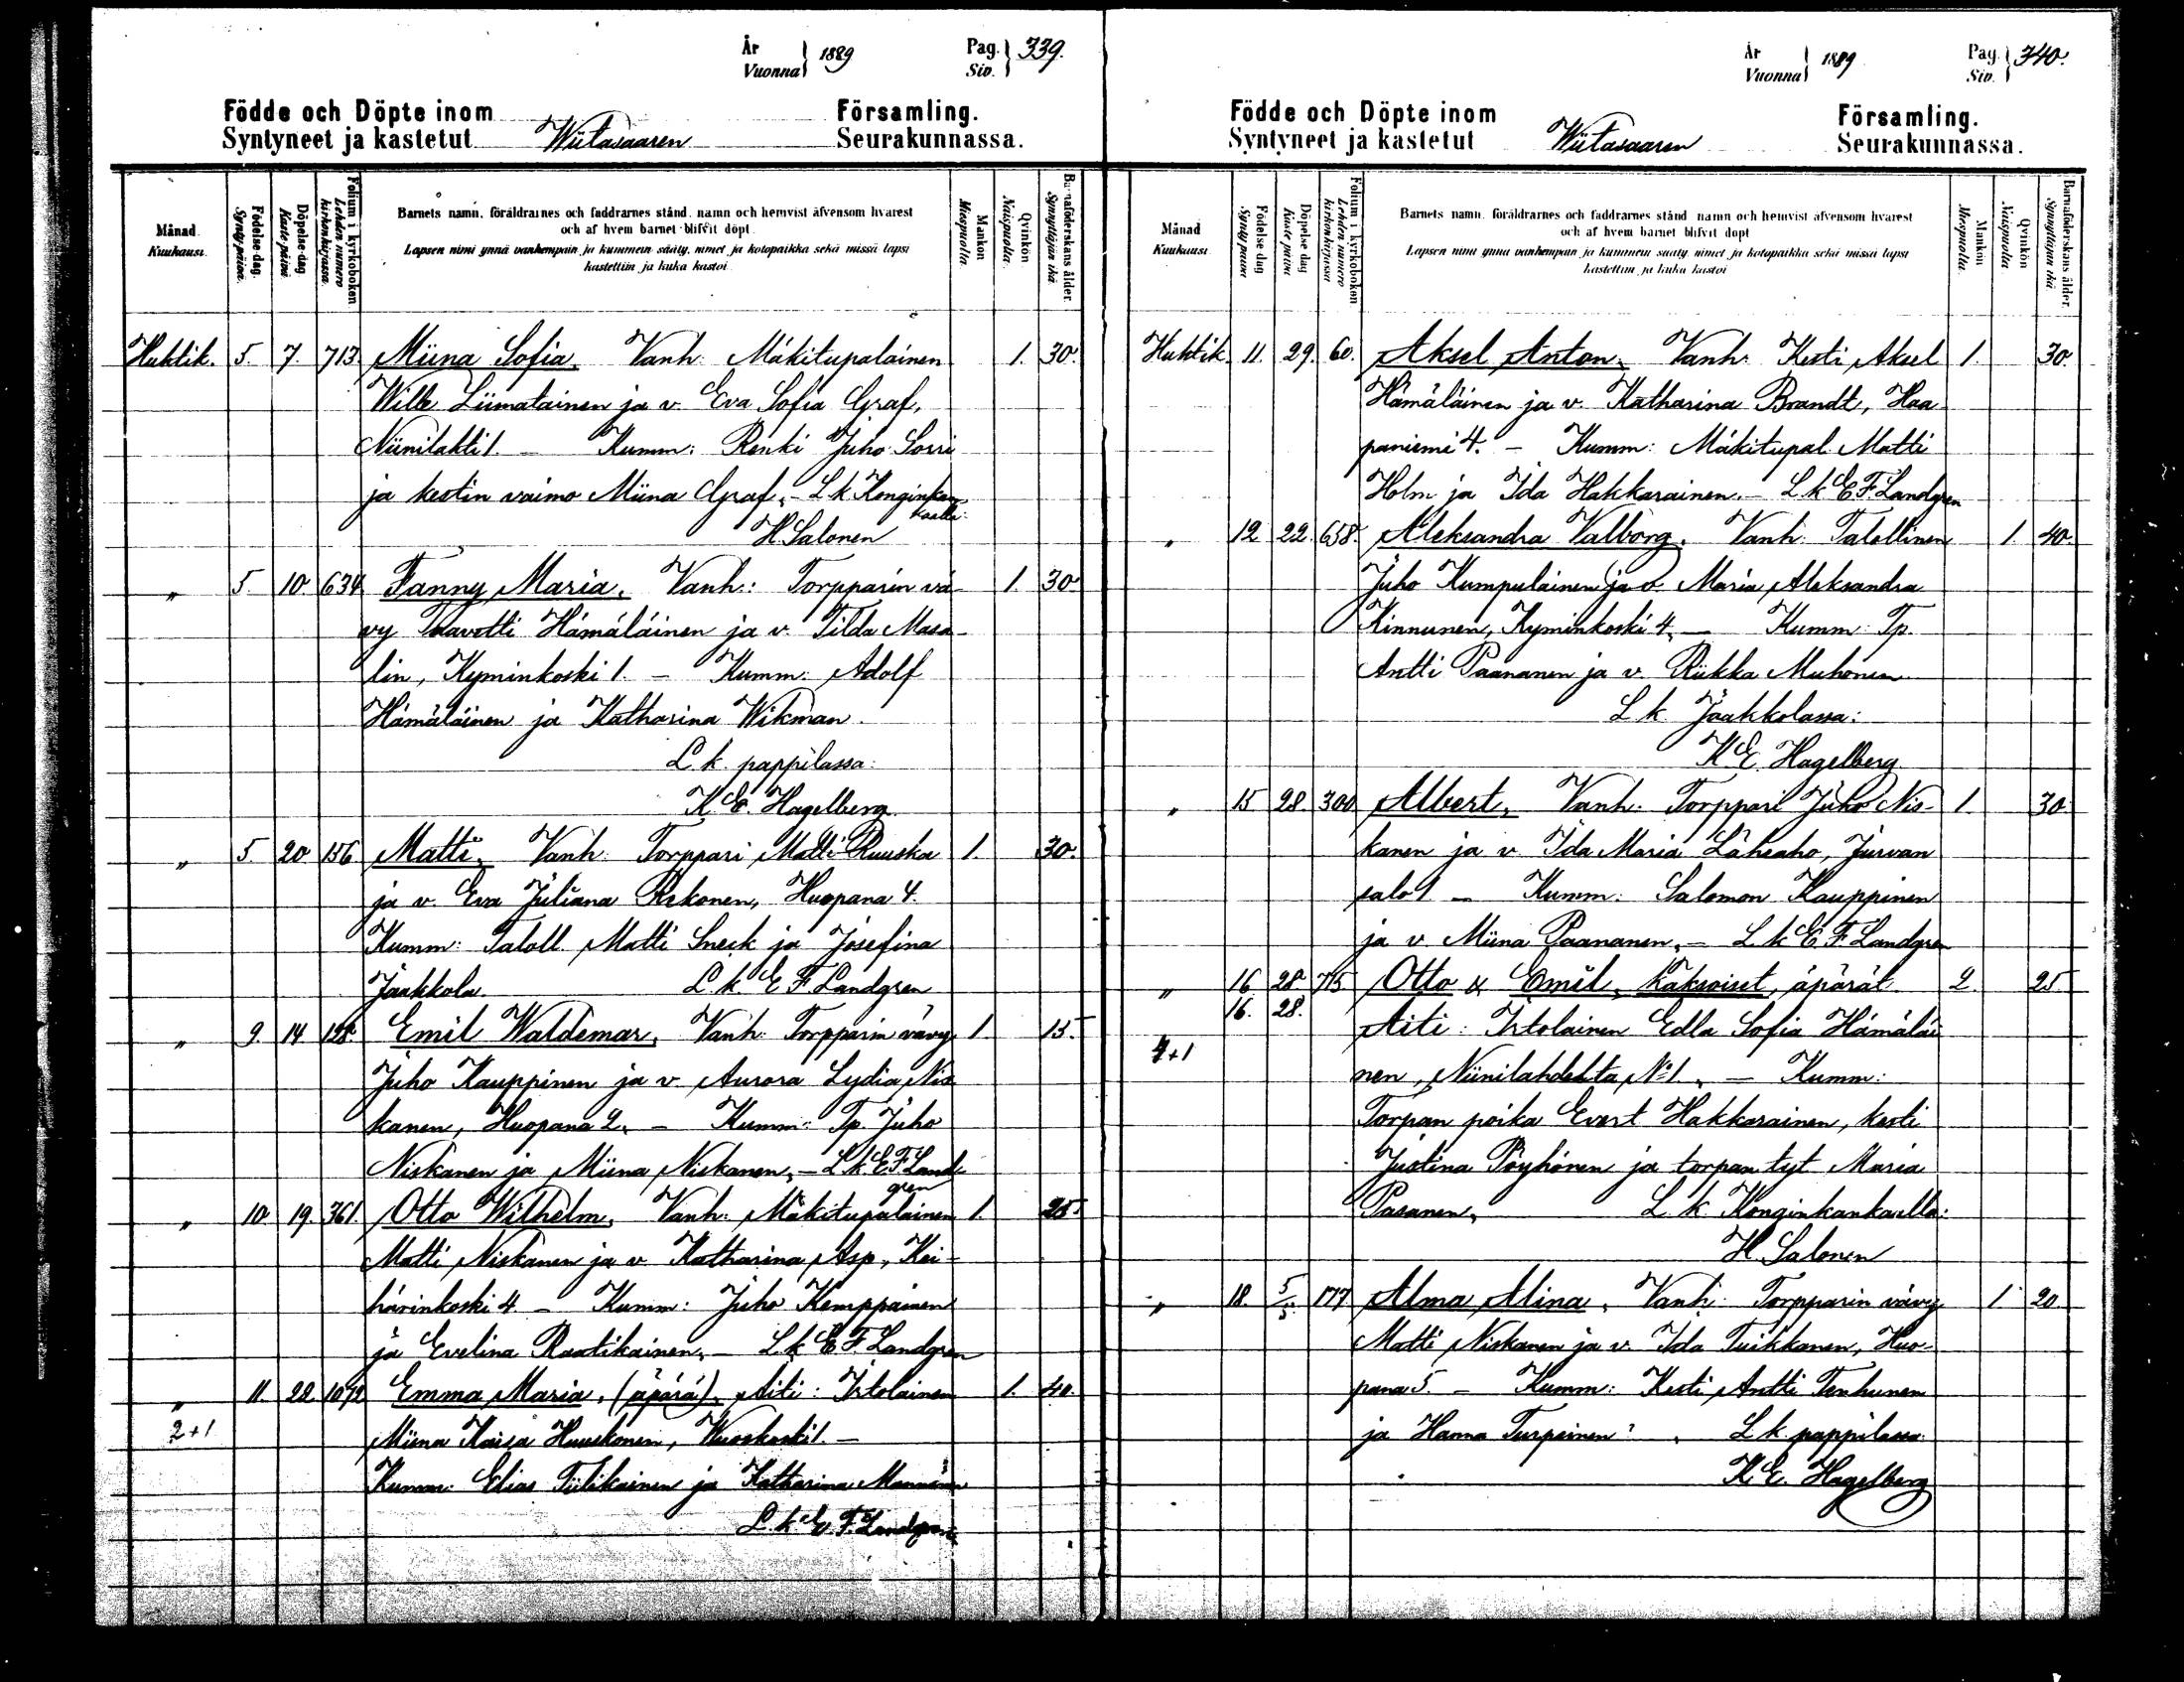 År
Vuonna } 1889
Pag.
Siv. } 339.
Födde och Döpte inom Församling.
Syntyneet ja kastetut Wiitasaaren Seurakunnassa.
Månad
Kuukausi
Födelse dag.
Synty-päivä.
Döpelse-dag
Kaste-päivä
Folium i kyrkoboken
Lehden numero
kirkonkirjassa.
Barnets namn, föräldrarnes och faddrarnes stånd, namn och hemvist äfvensom hvarest
och af hvem barnet blifvit döpt.
Lapsen nimi ynnä vanhempain ja kummein sääty, nimet ja kotopaikka sekä missä lapsi
kastettiin ja kuka kastoi
Mankön
Miespuolta.
Qvinkön
Naispuolta.
Barnaföderskans ålder.
Synnyttäjän ikä.
Huhtik. 5. 7. 713. Miina Sofia. Vanh: Mäkitupalainen 1. 30.
Wille Liimatainen ja v. Eva Sofia Graf,
Niinilahti 1. – Kumm: Renki Juho Sorri
ja kestin vaimo Miina Graf. – L.k. Konginkan-
kaalla:
H. Salonen
" 5 10 634 Fanny Maria. Vanh: Torpparin vä- 1. 30
vy Taavetti Hämäläinen ja v. Tilda Masa-
lin, Kyminkoski 1. – Kumm: Adolf
Hämäläinen ja Katharina Wikman.
L.k. pappilassa:
K. E. Hagelberg
" 5. 20 156 Matti. Vanh: Torppari Matti Ruuska 1. 30.
ja v. Eva Juliana Rekonen, Huopana 4.
Kumm: Taloll. Matti Sneck ja Josefina
Jaakkola. L.k. E. F. Landgren
" 9. 14 128. Emil Waldemar. Vanh: Torpparin vävy 1. 15.
Juho Kauppinen ja v. Aurora Lydia Nis-
kanen, Huopana 2. – Kumm: Tp. Juho
Niskanen ja Miina Niskanen. – L.k. E. F. Land-
gren
" 10. 19. 361. Otto Wilhelm. Vanh: Mäkitupalainen 1. 25.
Matti Niskanen ja v. Katharina Asp, Kei-
härinkoski 4. – Kumm: Juho Kemppainen
ja Evelina Raatikainen. – L.k. E. F. Landgren
" 11. 22. 1072 Emma Maria. (äpärä). Äiti: Irtolainen 1. 40.
2+1 Miina Kaisa Huuskonen, Wuoskoski 1. –
Kumm: Elias Tiilikainen ja Katharina Manninen
L.k. E. F. Landgren
År
Vuonna } 1889
Pag.
Siv. } 340.
Födde och Döpte inom Församling.
Syntyneet ja kastetut Wiitasaaren Seurakunnassa.
Månad
Kuukausi
Födelse dag
Synty päivä
Döpelse dag
Kaste päivä
Folium i kyrkoboken
Lehden numero
kirkonkirjassa
Barnets namn, föräldrarnes och faddrarnes stånd namn och hemvist äfvensom hvarest
och af hvem barnet blifvit döpt
Lapsen nimi ynnä vanhempain ja kummein sääty nimet ja kotopaikka sekä missä lapsi
kastettiin ja kuka kastoi
Mankön
Miespuolta.
Qvinkön
Naispuolta
Barnaföderskans ålder
Synnyttäjän ikä
Huhtik. 11. 29. 60. Aksel Anton. Vanh: Kesti Aksel 1. 30.
Hämäläinen ja v. Katharina Brandt, Haa-
paniemi 4. – Kumm: Mäkitupal. Matti
Holm ja Ida Hakkarainen. – L.k. E. F. Landgren
" 12 22. 658. Aleksandra Valborg. Vanh: Talollinen 1 40.
Juho Kumpulainen ja v. Maria Aleksandra
Kinnunen, Kyminkoski 4. – Kumm: Tp.
Antti Paananen ja v. Riikka Muhonen.
L.k. Jaakkolassa:
K. E. Hagelberg
" 15 28. 300 Albert. Vanh: Torppari Juho Nis- 1. 30
kanen ja v. Ida Maria Läheaho, Jurvan
salo 1 – Kumm: Salomon Kauppinen
ja v. Miina Paananen. – L.k. E. F. Landgren
" 16 28. 715 Otto & Emil, kaksoiset, äpärät. 2. 25.
16. 28. Äiti: Irtolainen Edla Sofia Hämäläi
4+1 nen, Niinilahdelta No 1. – Kumm:
Torpan poika Evert Hakkarainen, kesti
Justina Pöyhönen ja torpan tyt. Maria
Pasanen. L.k. Konginkankaalla:
H. Salonen
" 18. 5/5. 177 Alma Alina. Vanh: Torpparin vävy 1 20
Matti Niskanen ja v. Ida Tuikkanen, Huo-
pana 5. – Kumm: Kesti Antti Tenhunen
ja Hanna Turpeinen. L.k. pappilassa
K. E. Hagelberg